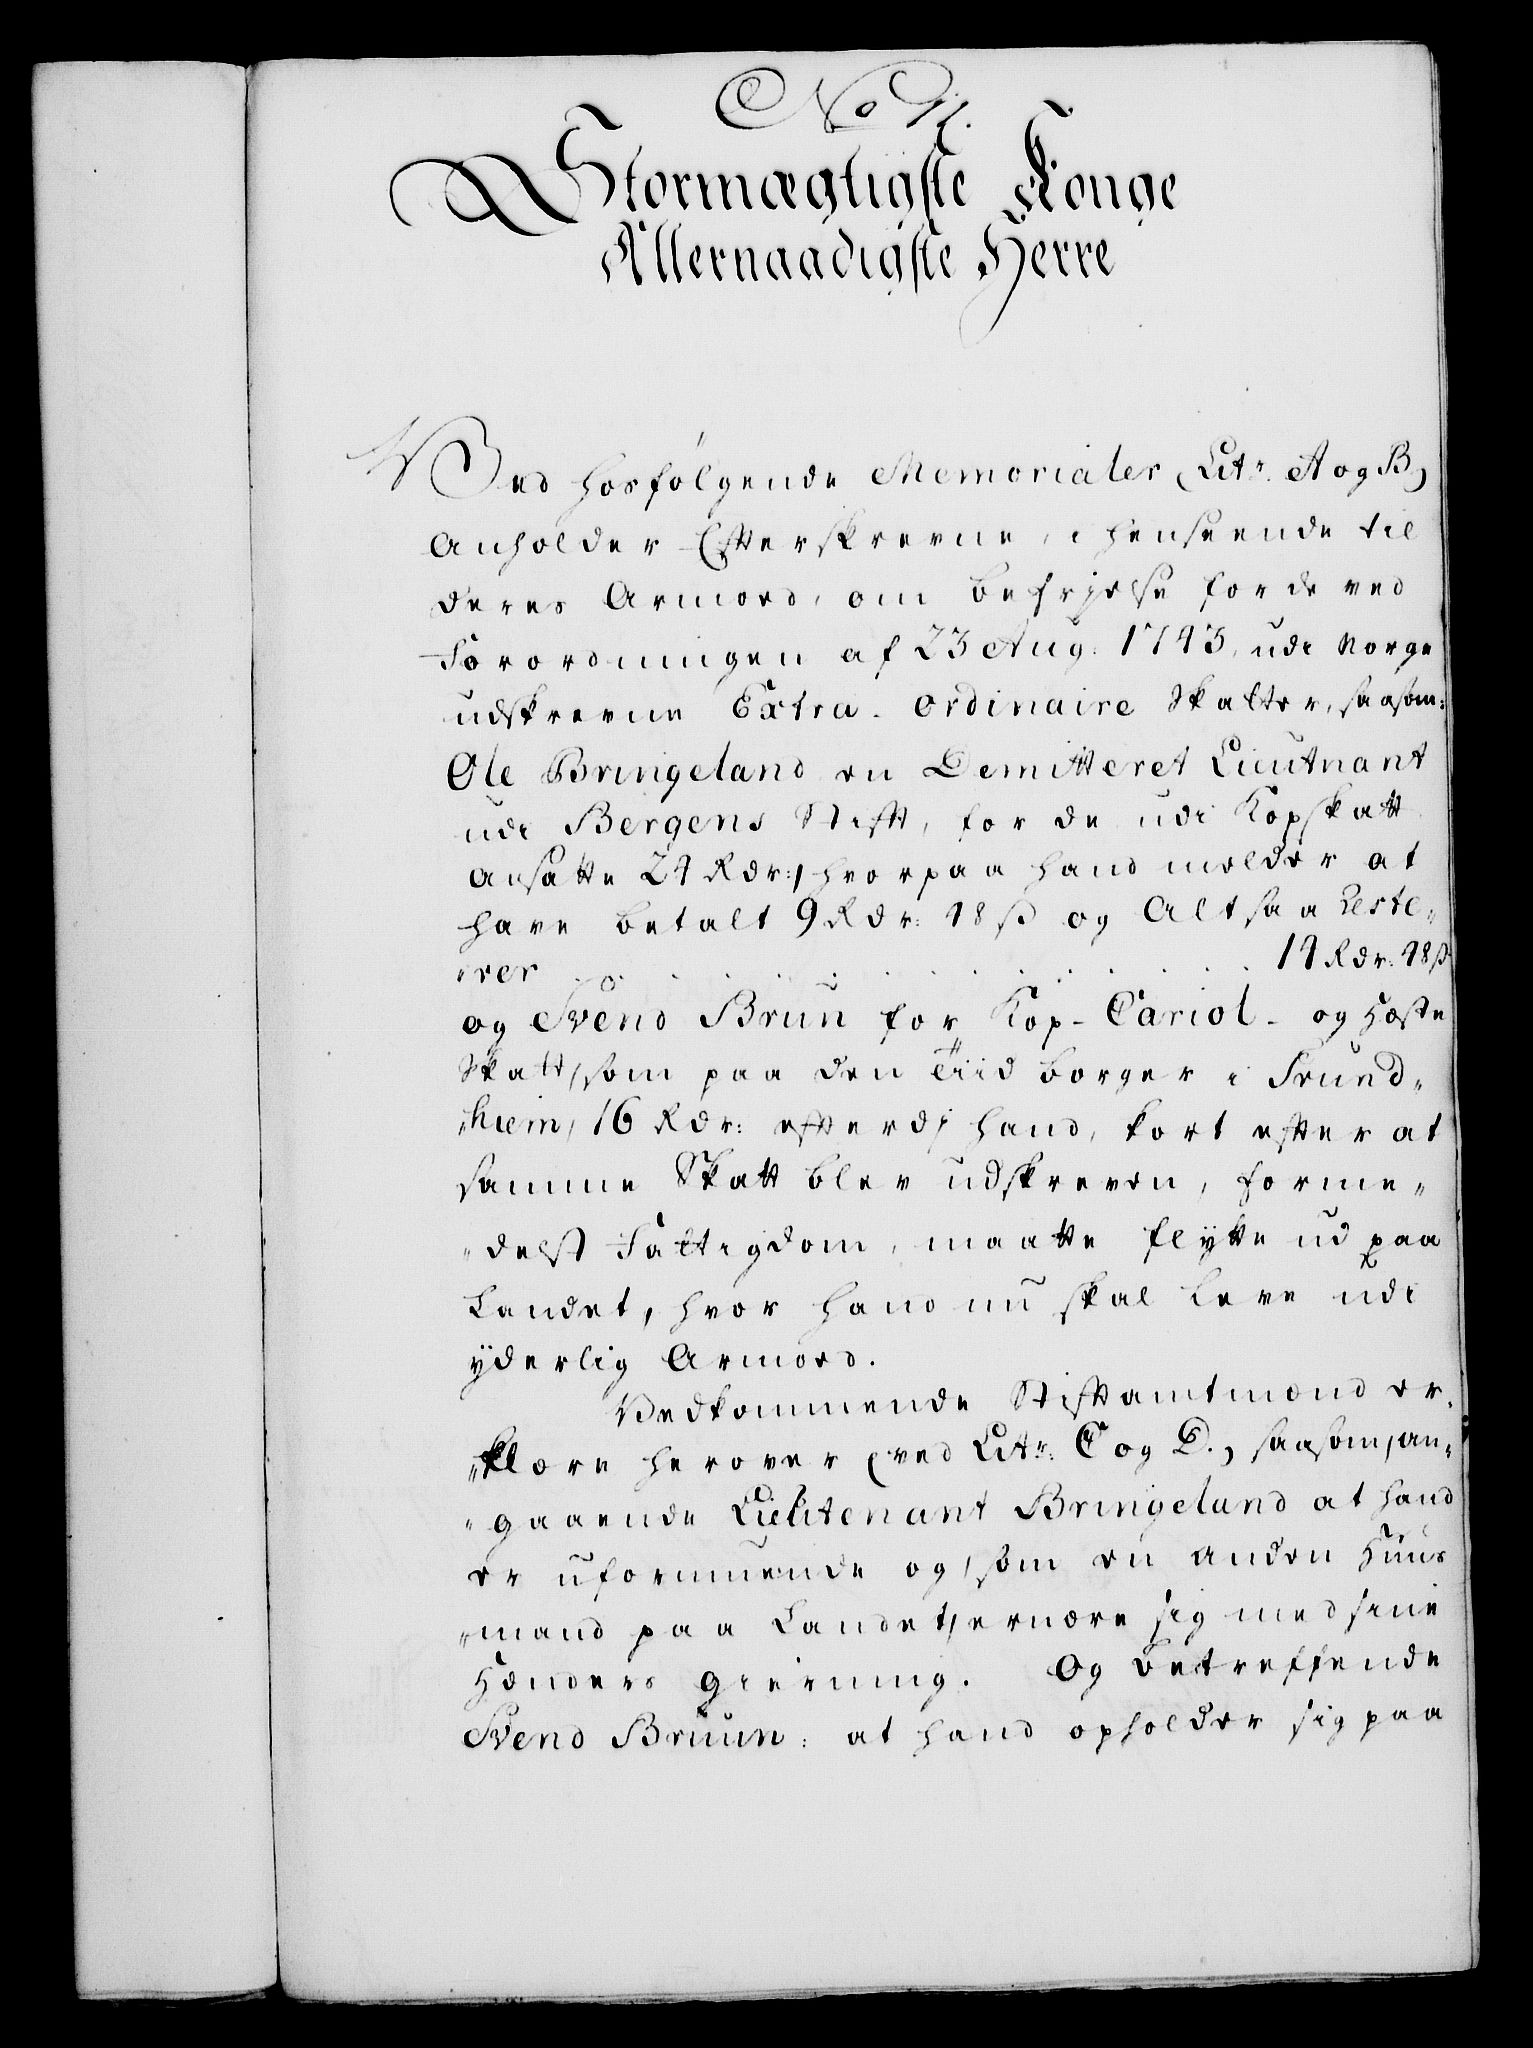 No 11.
Stormægtigste Konge
Allernaadigste Herre
Ved hosfølgende Memorialer (Litr. A og B)
Anholder Efterskrevne, i henseende til
deres Armoed, om befrielse for de ved
Forordningen af 23 Aug: 1743, udi Norge
udskrevne Extra-ordinaire Skatter, saasom:
Ole Bringeland en Demitteret Lieutnant
udi Bergens Stift, for de udi Kopskatt
ansatte 24 Rdr:, hvorpaa hand melder at
have betalt 9 Rdr: 48 ß og Altsaa Reste„
„rer . . . . . . . . . . 14 Rdr: 48 ß
og Svend Brun for Kop- Cariol- og Heste
Skatt, som paa den Tiid borger i Trund„
„hiem, 16 Rdr: efterdj hand, kort efter at
samme Skatt blev udskreven, forme„
„delst Fattigdom, maatte flytte ud paa
Landet, hvor hand nu skal leve udi
yderlig Armoed.
Vedkommende Stiftamtmænd er„
„klære herover (ved Litr: C og D.) saasom, an„
„gaaende Lieutenant Bringeland at hand
er uformuende og, som en anden Huus
„mand paa Landet, ernære sig med sine
Hænders Gierning. Og betreffende
Svend Bruun: at hand opholder sig paa